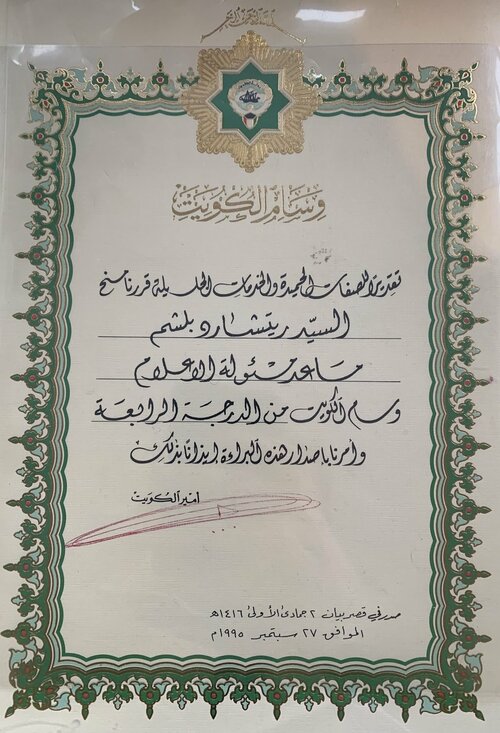 بسم الله الرحمن الرحيم
وسام الكويت
تقديرًا للصفات الحميدة والخدمات الجليلة قررنا منح
السيد ريتشارد بلشم
مساعد مسئولة الاعلام
وسام الكويت من الدرجة الرابعة
وأمرنا باصدار هذه البراءة ايذانًا بذلك
أمير الكويت
صدر في قصر بيان ٢ جمادى الأولى ١٤١٦هـ
الموافق ٢٧ سبتمبر ١٩٩٥م